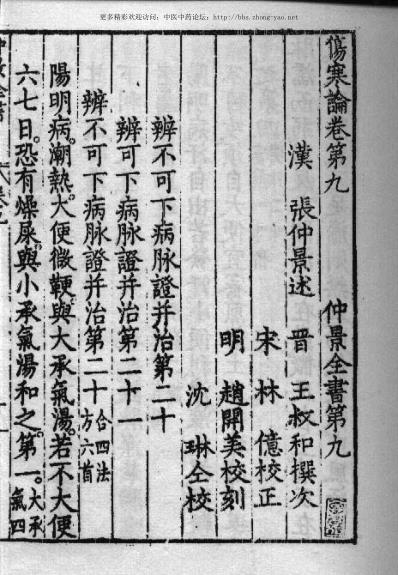 更多精彩欢迎访问：中医中药论坛：http://bbs.zhong-yao.net
傷寒論卷第九 仲景全書第九
漢 張仲景述 晉 王叔和撰次
宋 林 億校正
明 趙開美校刻
沈 琳仝校
辨不可下病脉證并治第二十
辨可下病脉證并治第二十一
辨不可下病脉證并治第二十 合四法 方六首
陽明病。潮熱。大便微鞕。與大承氣湯。若不大便
六七日。恐有燥屎。與小承氣湯和之。第一。大承氣四